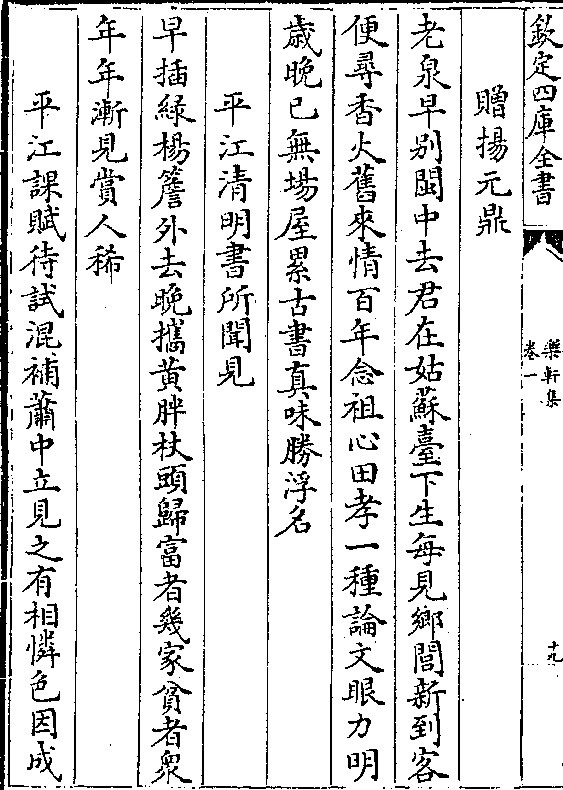 欽定四庫全書
樂軒集
卷一
十九
贈揚元鼎
老泉早别閩中去君在姑蘇臺下生每見鄉閭新到客
便尋香火舊來情百年念祖心田孝一種論文眼力明
歲晚已無場屋累古書真味勝浮名
平江清明書所聞見
早插緑楊簷外去晚攜黄胖杖頭歸富者幾家貧者衆
年年漸見賞人稀
平江課賦待試混補蕭中立見之有相憐色因成